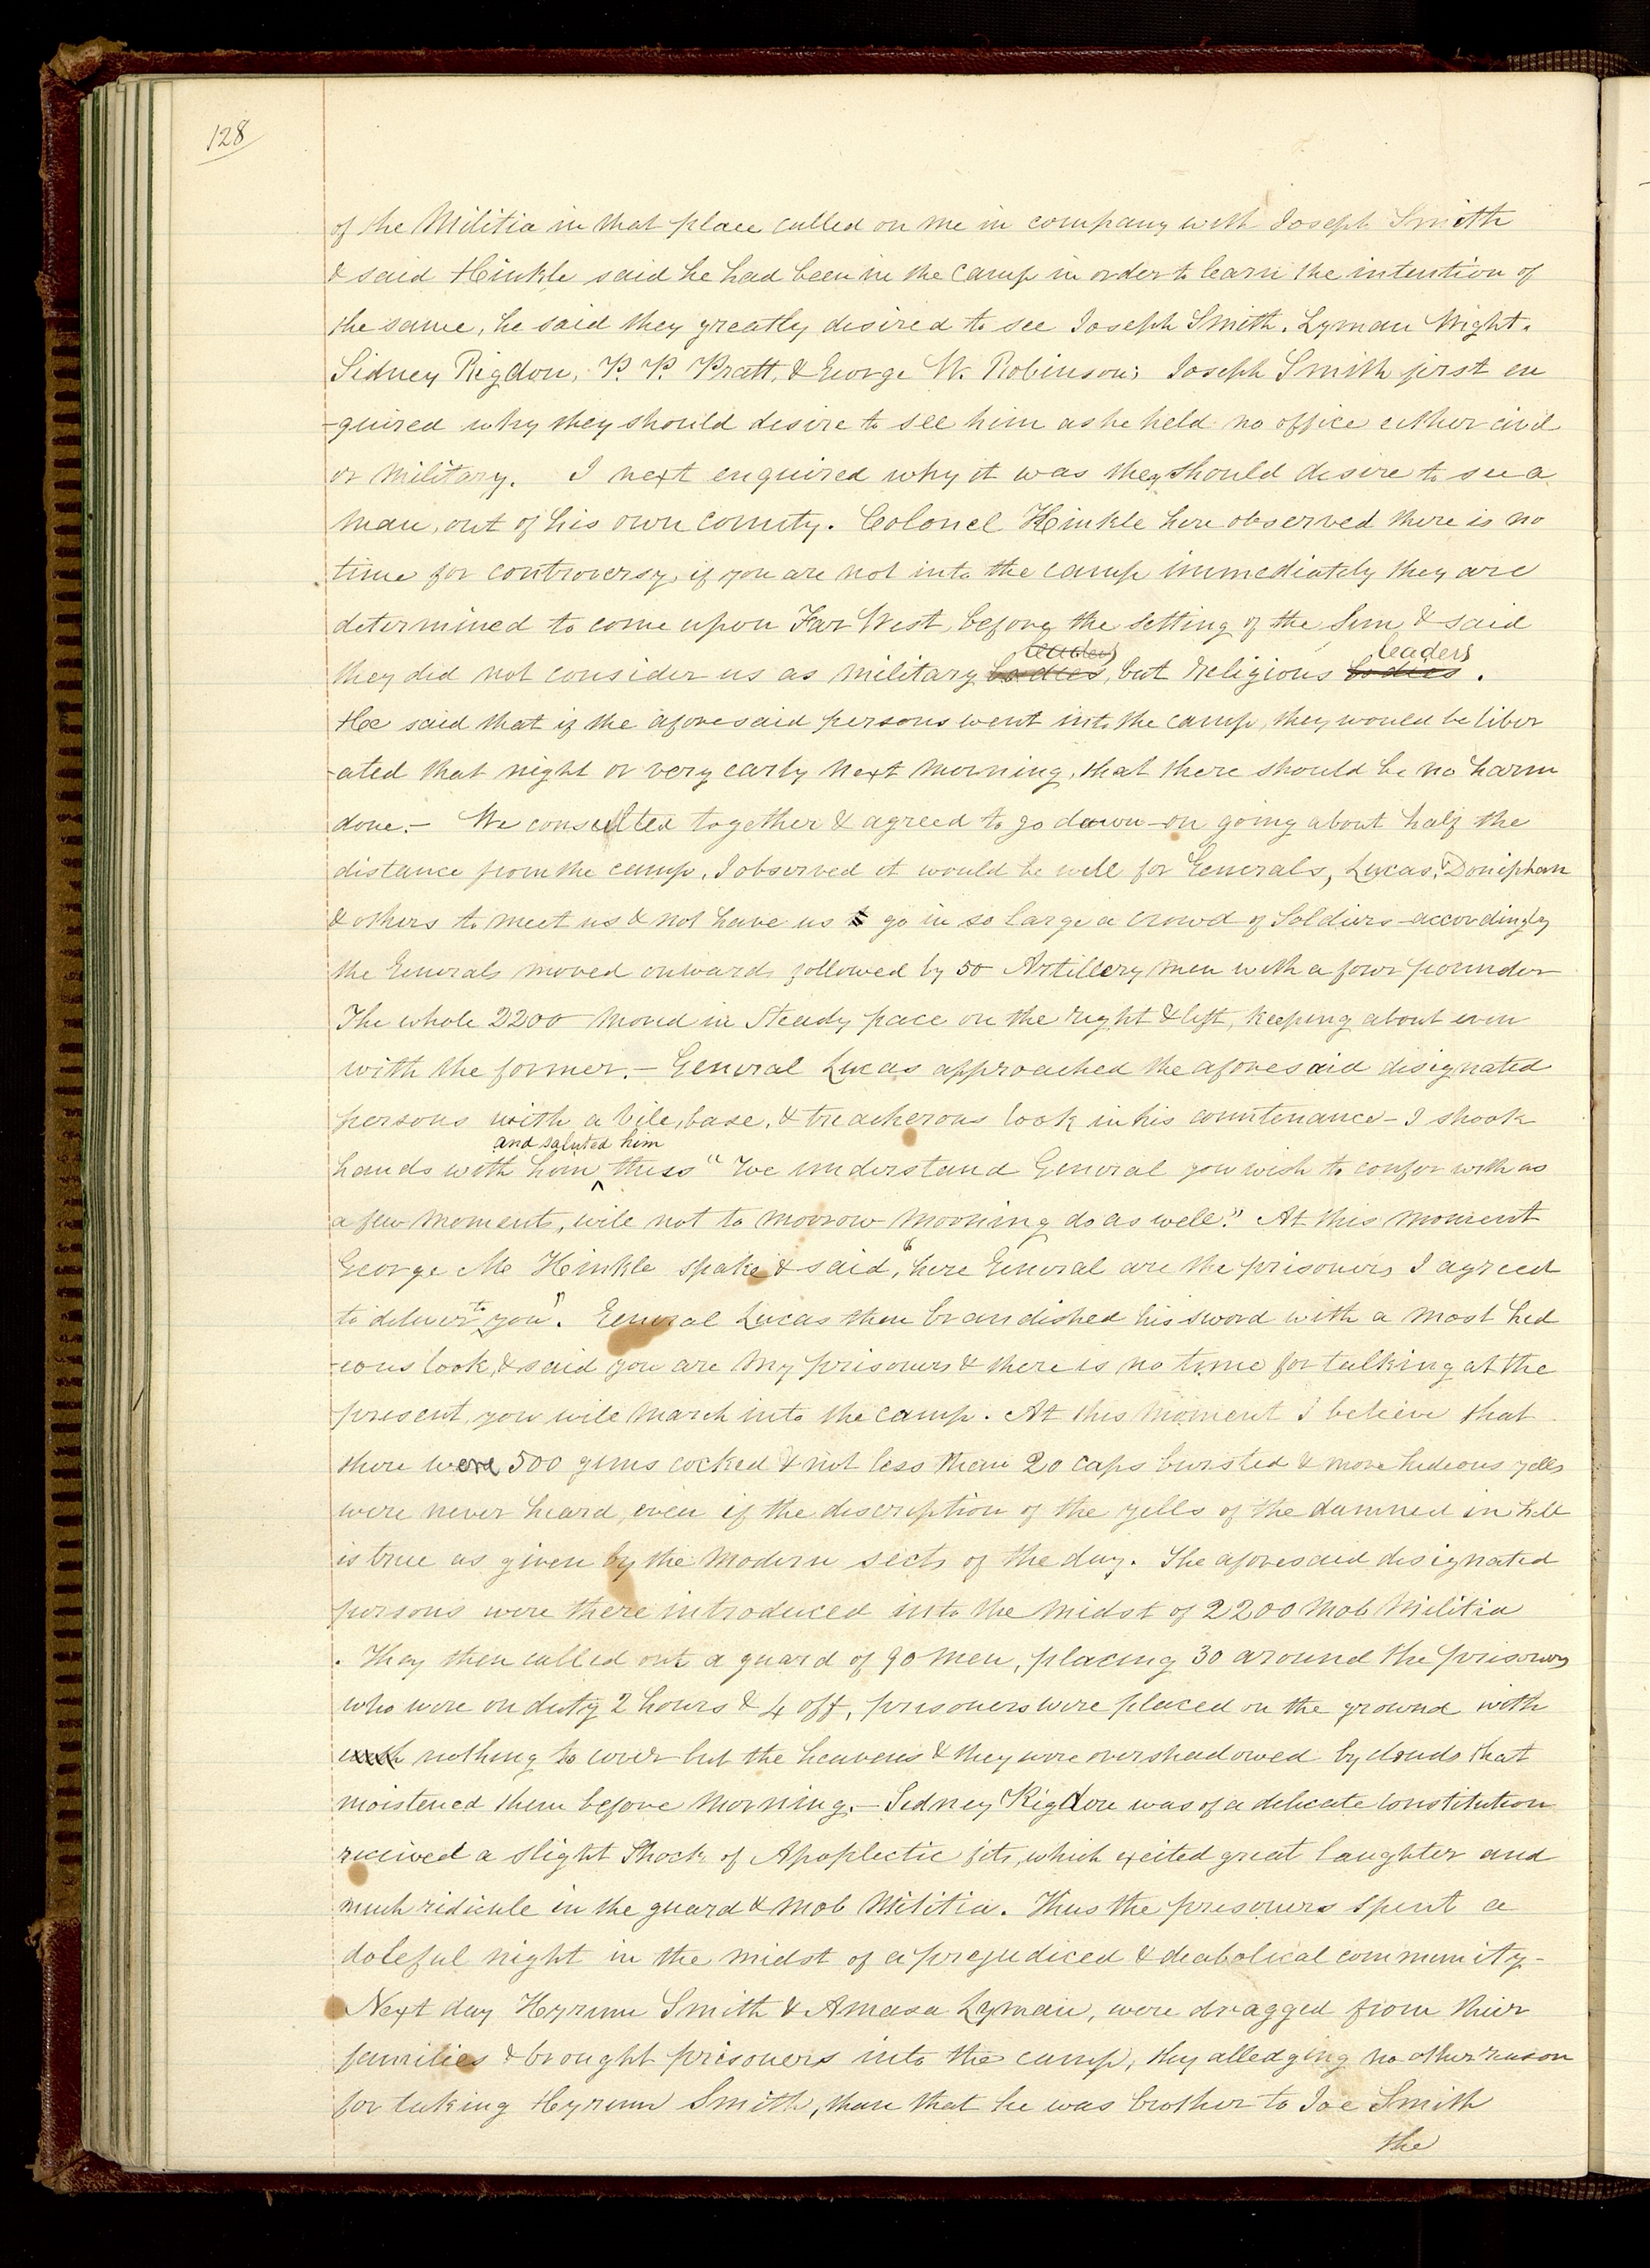 128
of the Militia in that place called on me in company with Joseph Smith
& said Hinkle said he had been in the camp in order to learn the intention of
the same, he said they greatly desired to see Joseph Smith, Lyman Wight,
Sidney Rigdon, P. P. Pratt, & George W. Robinson; Joseph Smith first en
-quired why they should desire to see him as he held no office either civil
or military. I next enquired why it was they should desire to see a
man, out of his own county. Colonel Hinkle here observed there is no
time for controversy, if you are not into the camp immediately they are
determined to come upon Far West, before the setting of the Sun & said
leaders leaders
they did not consider us as military bodies, but religious bodies.
He said that if the aforesaid persons went into the camp, they would be liber
-ated that night or very early next morning, that there should be no harm
done.— We consulted together & agreed to go down—on going about half the
distance from the camp, I observed it would be well for Generals, Lucas, Doniphan
& others to meet us & not have us to go in so large a crowd of Soldiers—accordingly
the Generals moved onwards followed by 50 Artillery men with a four pounder
The whole 2200 moved in Steady pace on the right & left, keeping about even
with the former.— General Lucas approached the aforesaid designated
persons with a vile, base, & treacherous look in his countenance—I shook
and saluted him
hands with him ^ thus "We understand General you wish to confer with us
a few moments, will not to morrow morning do as well." At this moment
George M Hinkle spake & said, "here General are the prisoners I agreed
to deliver to you". General Lucas then brandished his sword with a most hid
-eous look, & said you are my prisoners & there is no time for talking at the
present, you will march into the camp. At this moment I believe that
there were 500 guns cocked & not less than 20 caps bursted & more hideous yells
were never heard, even if the discription of the yells of the damned in hell
is true as given by the modern sects of the day. The aforesaid designated
persons were there introduced into the midst of 2200 mob militia
. They then called out a guard of 90 men, placing 30 around the prisoners
who were on duty 2 hours & 4 off, prisoners were placed on the ground with
nothing to cover but the heavens & they were overshadowed by clouds that
moistened them before morning.— Sidney Rigdon was of a delicate constitution
received a slight Shock of Apoplectic fits, which exited great laughter and
much ridicule in the guard & mob Militia. Thus the prisoners spent a
doleful night in the midst of a prejudiced & deabolical community—
Next day Hyrum Smith & Amasa Lyman, were dragged from thier
families & brought prisoners into the camp, they alledging no other reason
for taking Hyrum Smith, than that he was brother to Joe Smith
the